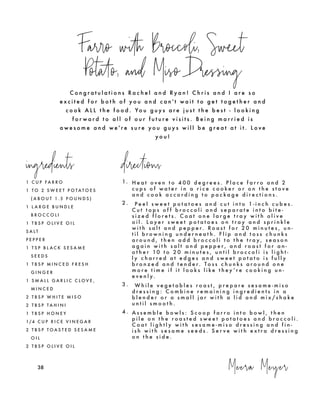 Farro with Broccoli, Sweet
Potato, and Miso Dressing
Congratulations Rachel and Ryan! Chris and I are so
excited for both of you and can't wait to get together and
cook ALL the food. You guys are just the best - looking
forward to all of our future visits. Being married is
awesome and we're sure you guys will be great at it. Love
you!
ingredients
1 CUP FARRO
1 TO 2 SWEET POTATOES
(ABOUT 1.5 POUNDS)
1 LARGE BUNDLE
BROCCOLI
1 TBSP OLIVE OIL
SALT
PEPPER
1 TSP BLACK SESAME
SEEDS
1 TBSP MINCED FRESH
GINGER
1 SMALL GARLIC CLOVE,
MINCED
2 TBSP WHITE MISO
2 TBSP TAHINI
1 TBSP HONEY
1/4 CUP RICE VINEGAR
2 TBSP TOASTED SESAME
OIL
2 TBSP OLIVE OIL
directions
1. Heat oven to 400 degrees. Place farro and 2
cups of water in a rice cooker or on the stove
and cook according to package directions.
2. Peel sweet potatoes and cut into 1-inch cubes.
Cut tops off broccoli and separate into bite-
sized florets. Coat one large tray with olive
oil. Layer sweet potatoes on tray and sprinkle
with salt and pepper. Roast for 20 minutes, un-
til browning underneath. Flip and toss chunks
around, then add broccoli to the tray, season
again with salt and pepper, and roast for an-
other 10 to 20 minutes, until broccoli is light-
ly charred at edges and sweet potato is fully
bronzed and tender. Toss chunks around one
more time if it looks like they're cooking un-
evenly.
3. While vegetables roast, prepare sesame-miso
dressing: Combine remaining ingredients in a
blender or a small jar with a lid and mix/shake
until smooth.
4. Assemble bowls: Scoop farro into bowl, then
pile on the roasted sweet potatoes and broccoli.
Coat lightly with sesame-miso dressing and fin-
ish with sesame seeds. Serve with extra dressing
on the side.
38
Meera Meyer